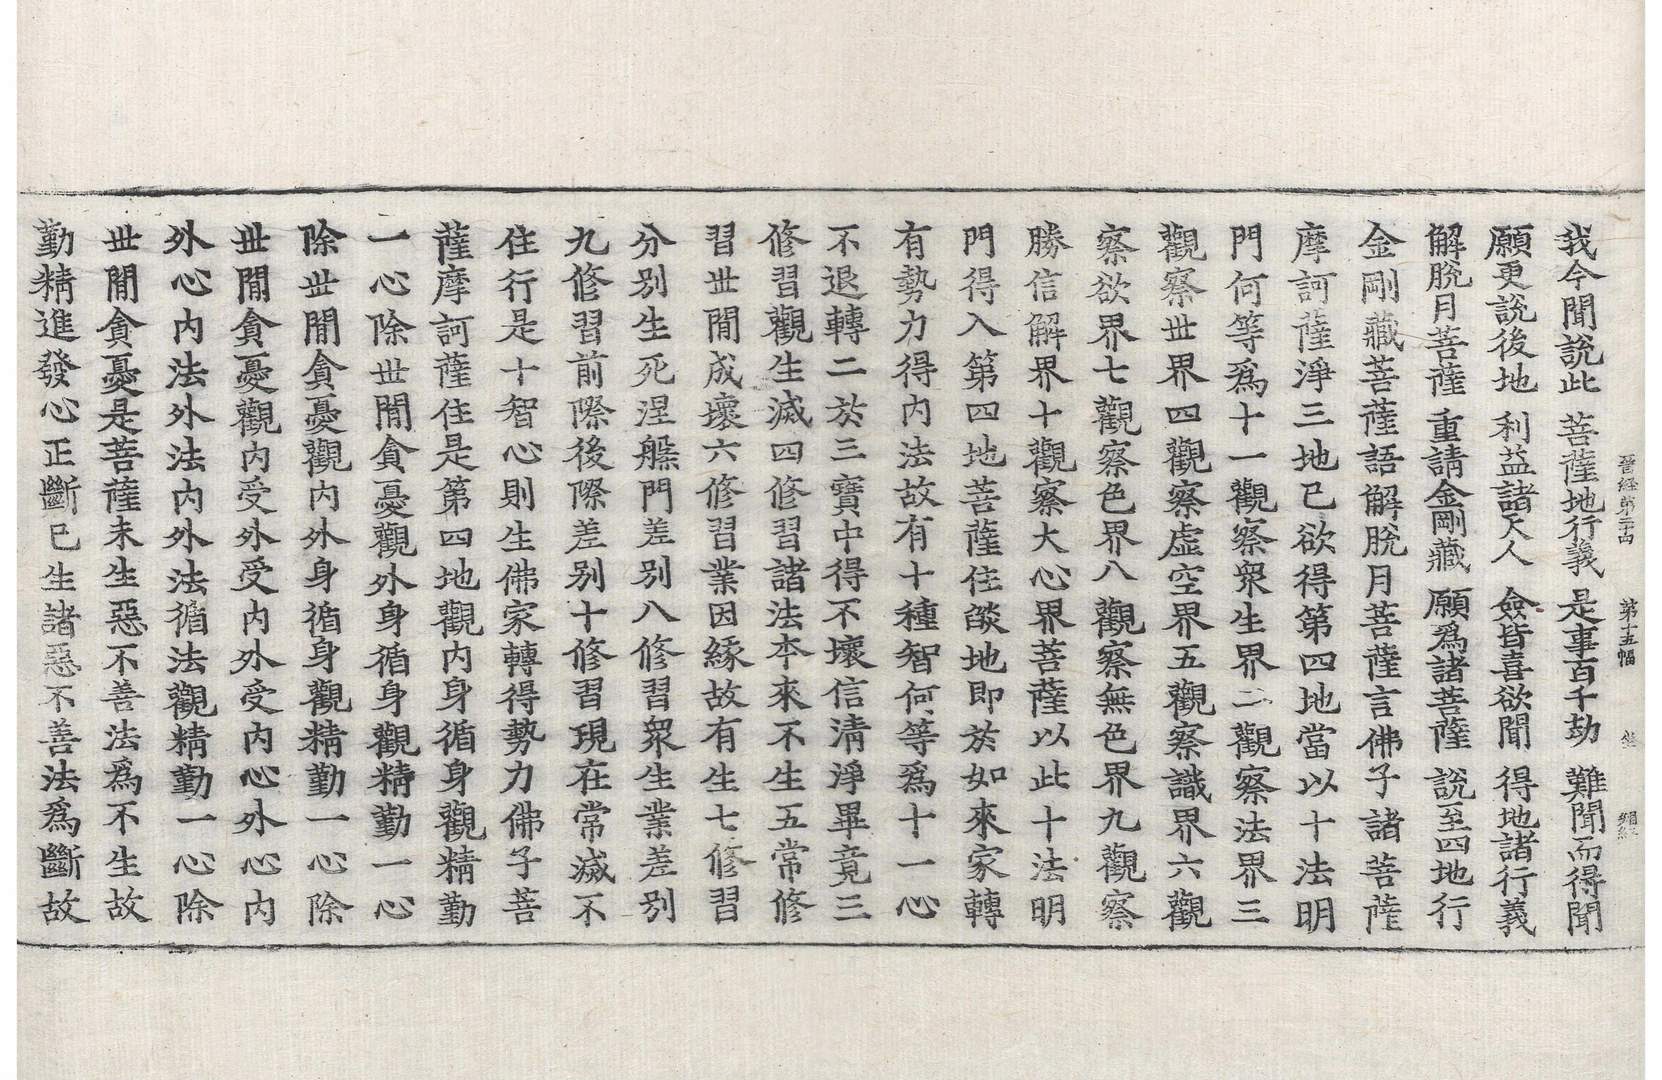 晉經第二十四 第十五幅
我今聞說此 菩薩地行義 是事百千劫 難聞而得聞
願更說後地 利益諸天人 僉皆喜欲聞 得地諸行義
解脫月菩薩 重請金剛藏 願爲諸菩薩 說至四地行
金剛藏菩薩語解脫月菩薩言佛子諸菩薩
摩訶薩淨三地已欲得第四地當以十法明
門何等爲十一觀察衆生界二觀察法界三
觀察世界四觀察虛空界五觀察識界六觀
察欲界七觀察色界八觀察無色界九觀察
勝信解界十觀察大心界菩薩以此十法明
門得入第四地菩薩住燄地即於如來家轉
有勢力得內法故有十種智何等爲十一心
不退轉二於三寶中得不壞信清淨畢竟三
修習觀生滅四修習諸法本來不生五常修
習世閒成壞六修習業因緣故有生七修習
分別生死涅槃門差別八修習衆生業差別
九修習前際後際差別十修習現在常滅不
住行是十智心則生佛家轉得勢力佛子菩
薩摩訶薩住是第四地觀內身循身觀精勤
一心除世閒貪憂觀外身循身觀精勤一心
除世閒貪憂觀內外身循身觀精勤一心除
世閒貪憂觀內受外受內外受內心外心內
外心內法外法內外法循法觀精勤一心除
世閒貪憂是菩薩未生惡不善法爲不生故
勤精進發心正斷已生諸惡不善法爲斷故